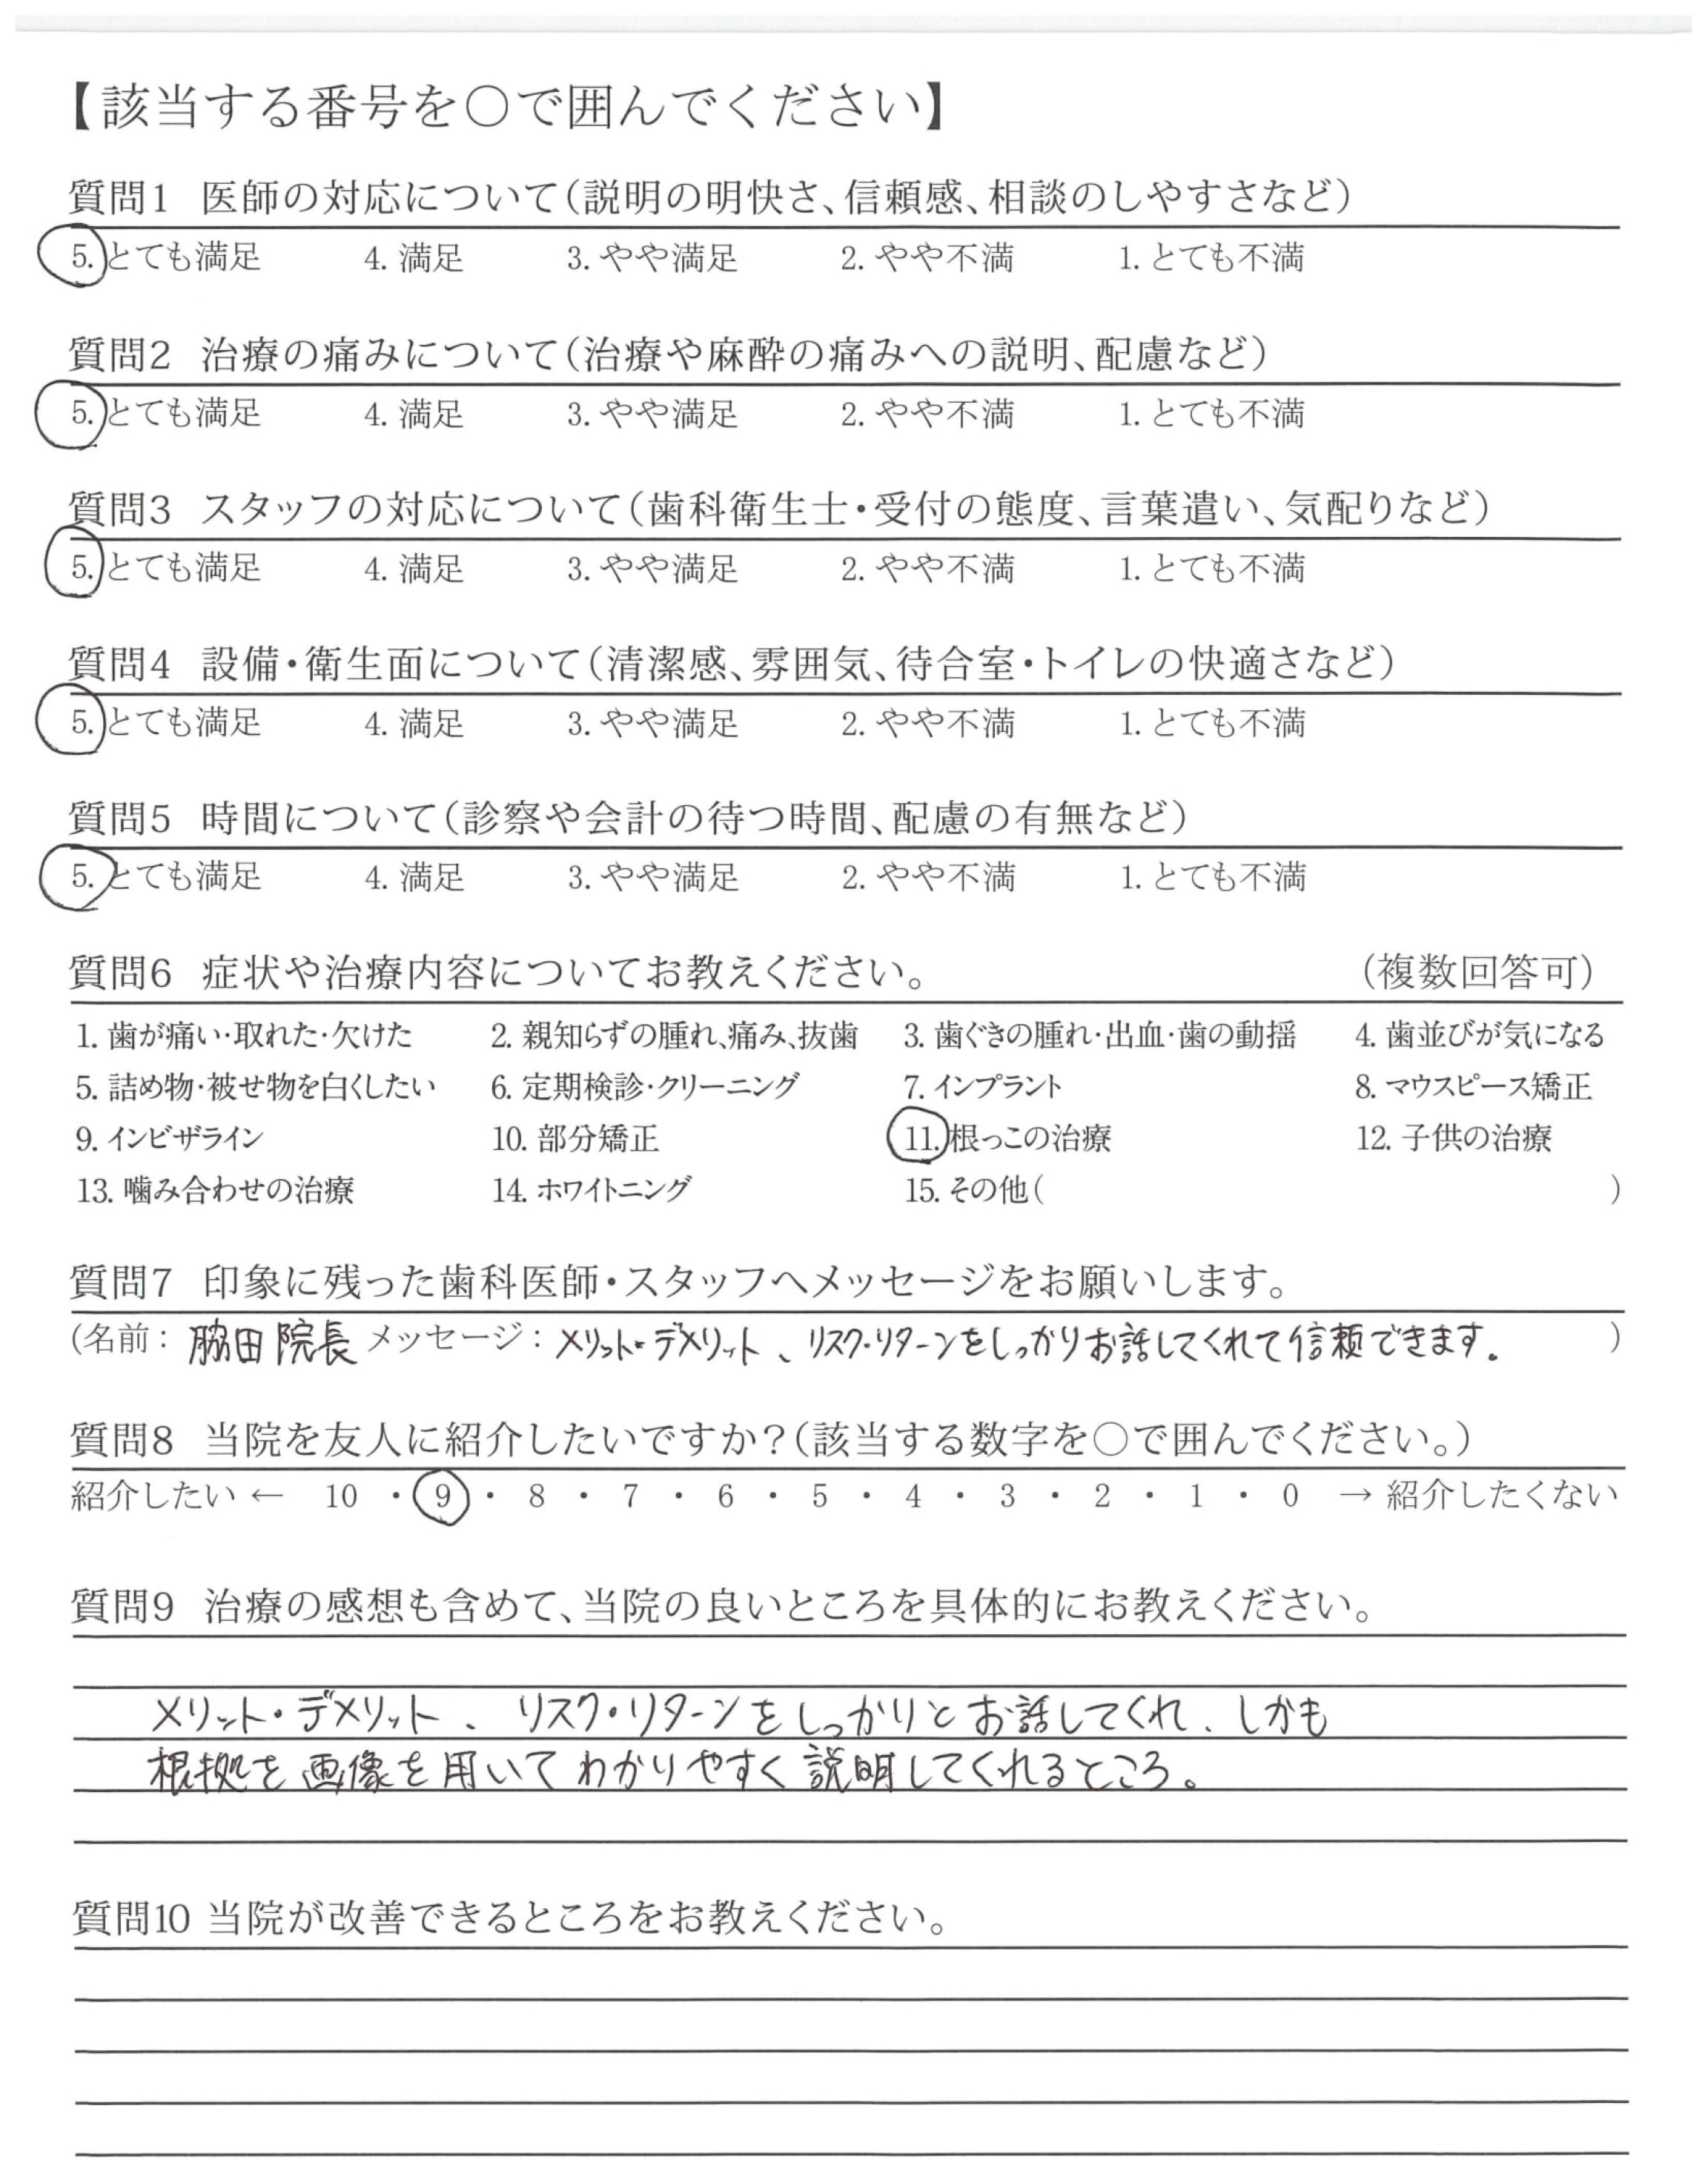 【該当する番号を○で囲んでください】
質問1 医師の対応について(説明の明快さ、信頼感、相談のしやすさなど)
5. とても満足 4. 満足 3. やや満足 2. やや不満 1. とても不満
質問2 治療の痛みについて(治療や麻酔の痛みへの説明、配慮など)
5. とても満足 4. 満足 3. やや満足 2. やや不満 1. とても不満
質問3 スタッフの対応について(歯科衛生士・受付の態度、言葉遣い、気配りなど)
5. とても満足 4. 満足 3. やや満足 2. やや不満 1. とても不満
質問4 設備・衛生面について(清潔感、雰囲気、待合室・トイレの快適さなど)
5. とても満足 4. 満足 3. やや満足 2. やや不満 1. とても不満
質問5 時間について(診察や会計の待つ時間、配慮の有無など)
5. とても満足 4. 満足 3. やや満足 2. やや不満 1. とても不満
質問6 症状や治療内容についてお教えください。 (複数回答可)
1. 歯が痛い・取れた・欠けた 2. 親知らずの腫れ、痛み、抜歯 3. 歯ぐきの腫れ・出血・歯の動揺 4. 歯並びが気になる
5. 詰め物・被せ物を白くしたい 6. 定期検診・クリーニング 7. インプラント 8. マウスピース矯正
9. インビザライン 10. 部分矯正 11. 根っこの治療 12. 子供の治療
13. 噛み合わせの治療 14. ホワイトニング 15. その他( )
質問7 印象に残った歯科医師・スタッフへメッセージをお願いします。
(名前: 脇田 院長 メッセージ: メリット・デメリット、リスク・リターンをしっかりお話してくれて信頼できます。 )
質問8 当院を友人に紹介したいですか?(該当する数字を○で囲んでください。)
紹介したい ← 10 ・ 9 ・ 8 ・ 7 ・ 6 ・ 5 ・ 4 ・ 3 ・ 2 ・ 1 ・ 0 → 紹介したくない
質問9 治療の感想も含めて、当院の良いところを具体的にお教えください。
メリット・デメリット、リスク・リターンをしっかりとお話してくれ、しかも
根拠を画像を用いてわかりやすく説明してくれるところ。
質問10 当院が改善できるところをお教えください。